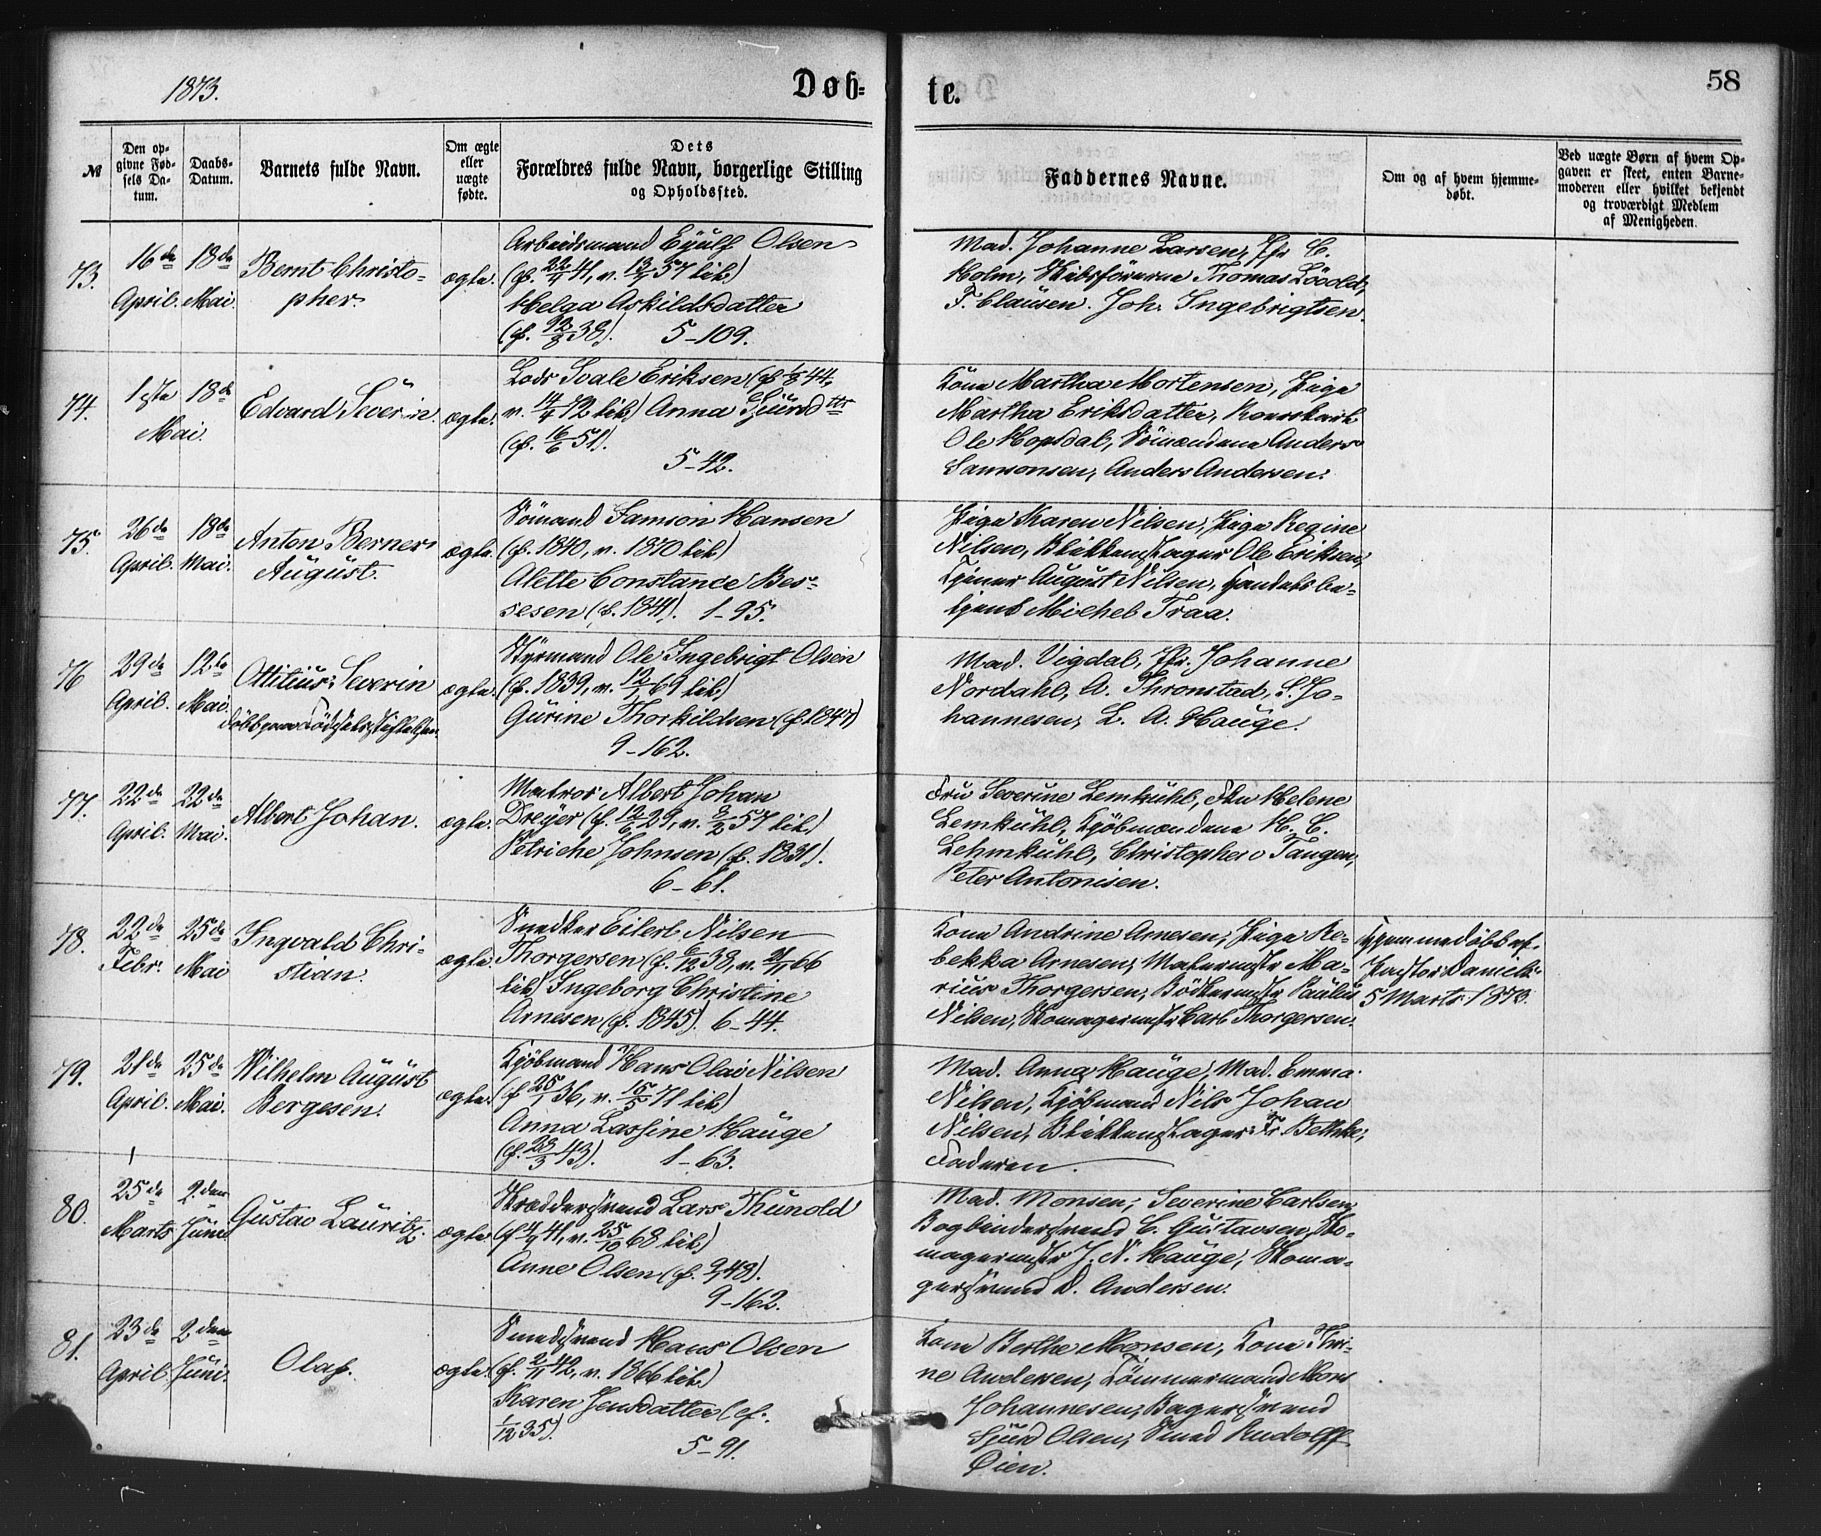 1873.
Døb-
te.
58
№
Den op-
givne Fød-
sels Da-
tum.
Daabs-
Datum.
Barnets fulde Navn.
Om ægte
eller
uægte
fødte.
Dets
Forældres fulde Navn, borgerlige Stilling
og Opholdssted.
Faddernes Navne.
Om og af hvem hjemme-
døbt.
Ved uægte Børn af hvem Op-
gaven er skeet, enten Barne-
moderen eller hvilket bekjendt
og troværdigt Medlem
af Menigheden.
73.
16de
April.
18de
Mai.
Bernt Christo-
pher
ægte.
Arbeidsmand Eyülf Olsen
(f. 22/4 41, v. 13/4 57 lib.)
Helga Askildsdatter
(f. 38). 5-109.
Mad. Johanne Larsen, Pfr C.
Holm, Skibsförerne Thomas
F. Claüsen. Joh. Ingebrigtsen.
74.
1ste
Mai.
18de
Edvard Severin.
ægte.
Lods Svale Eriksen (f. 44,
v. 14/4 72 lib.) Anna
(f. 16/6 51).
5-42.
Kone Martha Mortensen, Pige
Martha Eriksdatter, Konstabel
Ole Hopsdal, Sömændene Anders
Samsonsen, Anders Andersen.
75.
26de
April.
18de
Mai.
Anton Berner
Aügüst.
ægte.
Sömand Samson Hansen
(f. 1840, v. 1870 lib.)
Alette Constance Bes-
sesen (f. 1841). 1-95.
Pige Karen Nilsen, Pige Regine
Nilsen, Blikkenslager Ole Eriksen,
Tjener Aügüst Nilsen, Handelsbe-
tjent Michel Traa.
76
29de
April.
12te
Mai.
Ottilius Severin
döbt paa Födselsstiftelsen.
ægte.
Styrmand Ole Ingebrigt Olsen
(f. 1839, v. 12/1 69 lib.)
Gürine Thorkildsen (f. 1847)
9-162.
Mad. Vigdal, Pfr. Johanne
Nordahl, A. Thronstad, S. Jo-
hannesen, L. A. Haüge.
77.
22de
April.
22de
Mai.
Albert Johan.
ægte.
Matros Albert Johan
Dreyer (f. 12/6 29, v. 57 lib.)
Petriche Johnsen (f. 1831).
6-61.
Frü Severine Lemkühl, Frk Helene
Lemkühl, Kjöbmændene H. C.
Lehmkühl, Christopher Tangen,
Peter Antonisen.
78.
22de
Febr.
25de
Mai
Ingvald Chri-
stian.
ægte.
Snedker Eilert Nilsen
Thorgersen (f. 6/12 38, v. 66
lib.) Ingeborg Christine
Arnesen (f. 1845). 6-44.
Kone Andrine Arnesen, Pige Re-
bekka Arnesen, Malermestr Ma-
rius Thorgersen, Bödkermestr Paülüs
Nilsen, Skomagermestr Carl Thorgersen.
Hjemmedöbt af
Pastor Daniels
5 Marts 1873.
79.
21de
April.
25de
Mai.
Wilhelm Aügüst
Bergesen.
ægte.
Kjöbmand Hans Olai Nilsen
(f. 25/1 36, v. 15/5 71 lib.)
Anna Lassine Haüge
(f. 23/3 43). 1-63.
Mad. Anna Haüge, Mad. Emma
Nilsen, Kjöbmand Nils Johan
Nilsen, Blikkenslager Fr. Bethke,
Faderen
80.
25de
Marts
2den
Jüni
Güstav Laüritz.
ægte.
Skræddersvend Lars Thünold
(f. 41, v. 25/10 68 lib.)
Anne Olsen (f. 48).
9-162.
Mad. Monsen, Severine Carlsen,
Bogbindersvend C. Güstavsen, Sko-
magermestr J. N. Haüge, Skoma-
gersvend D. Andersen.
81.
23de
April.
2den
Jüni.
Olaf.
ægte.
Smedsvend Hans Olsen
(f. 2/1 42, v. 1866 lib.)
Karen Jensdatter (f.
1/12 35).
5-91.
Kone Berthe Monsen, Kone Thri-
ne Andersen, Tömmermand Mons
Johannesen, Bagersvend
Sjürd Olsen, Smed Rudolff
Öien.